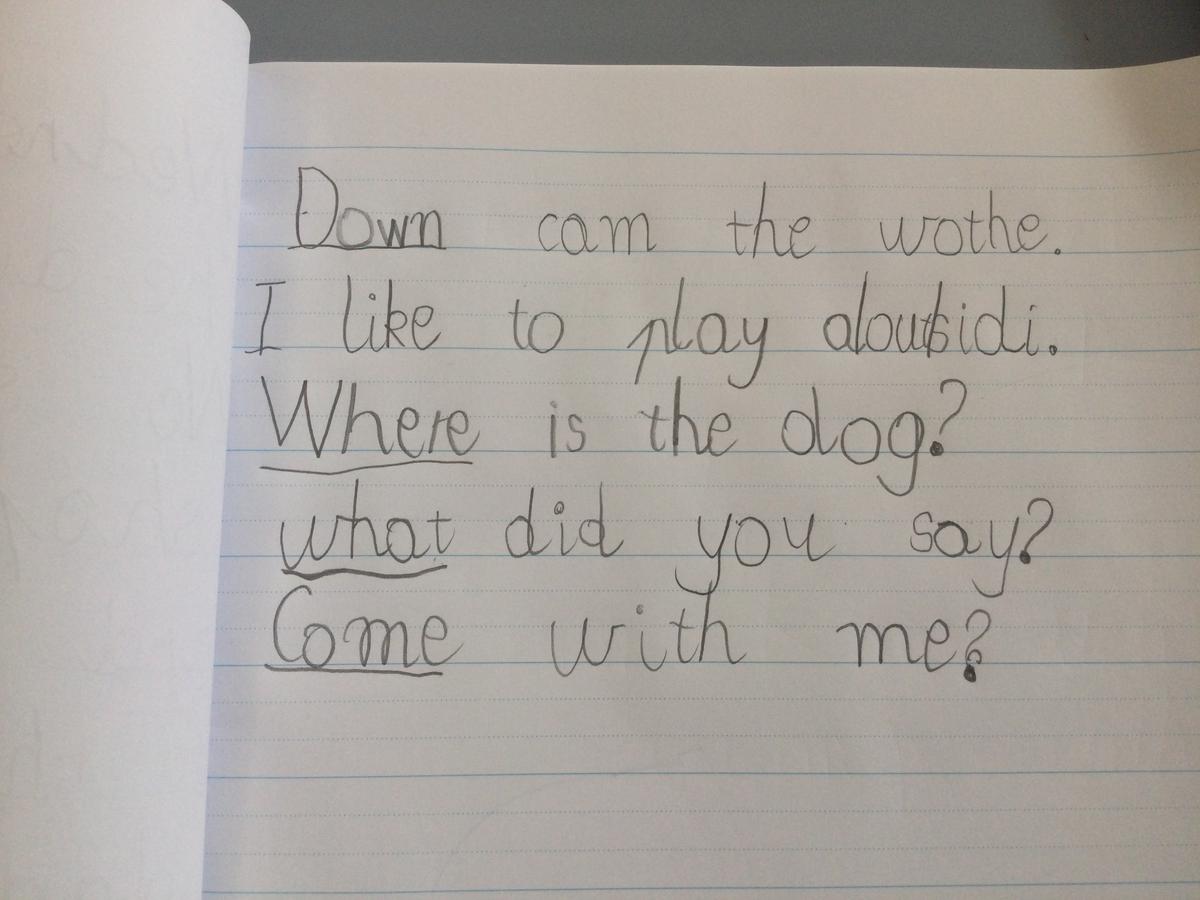 Down cam the wothe.
I like to play
Where is the dog?
what did you say?
Come with me?